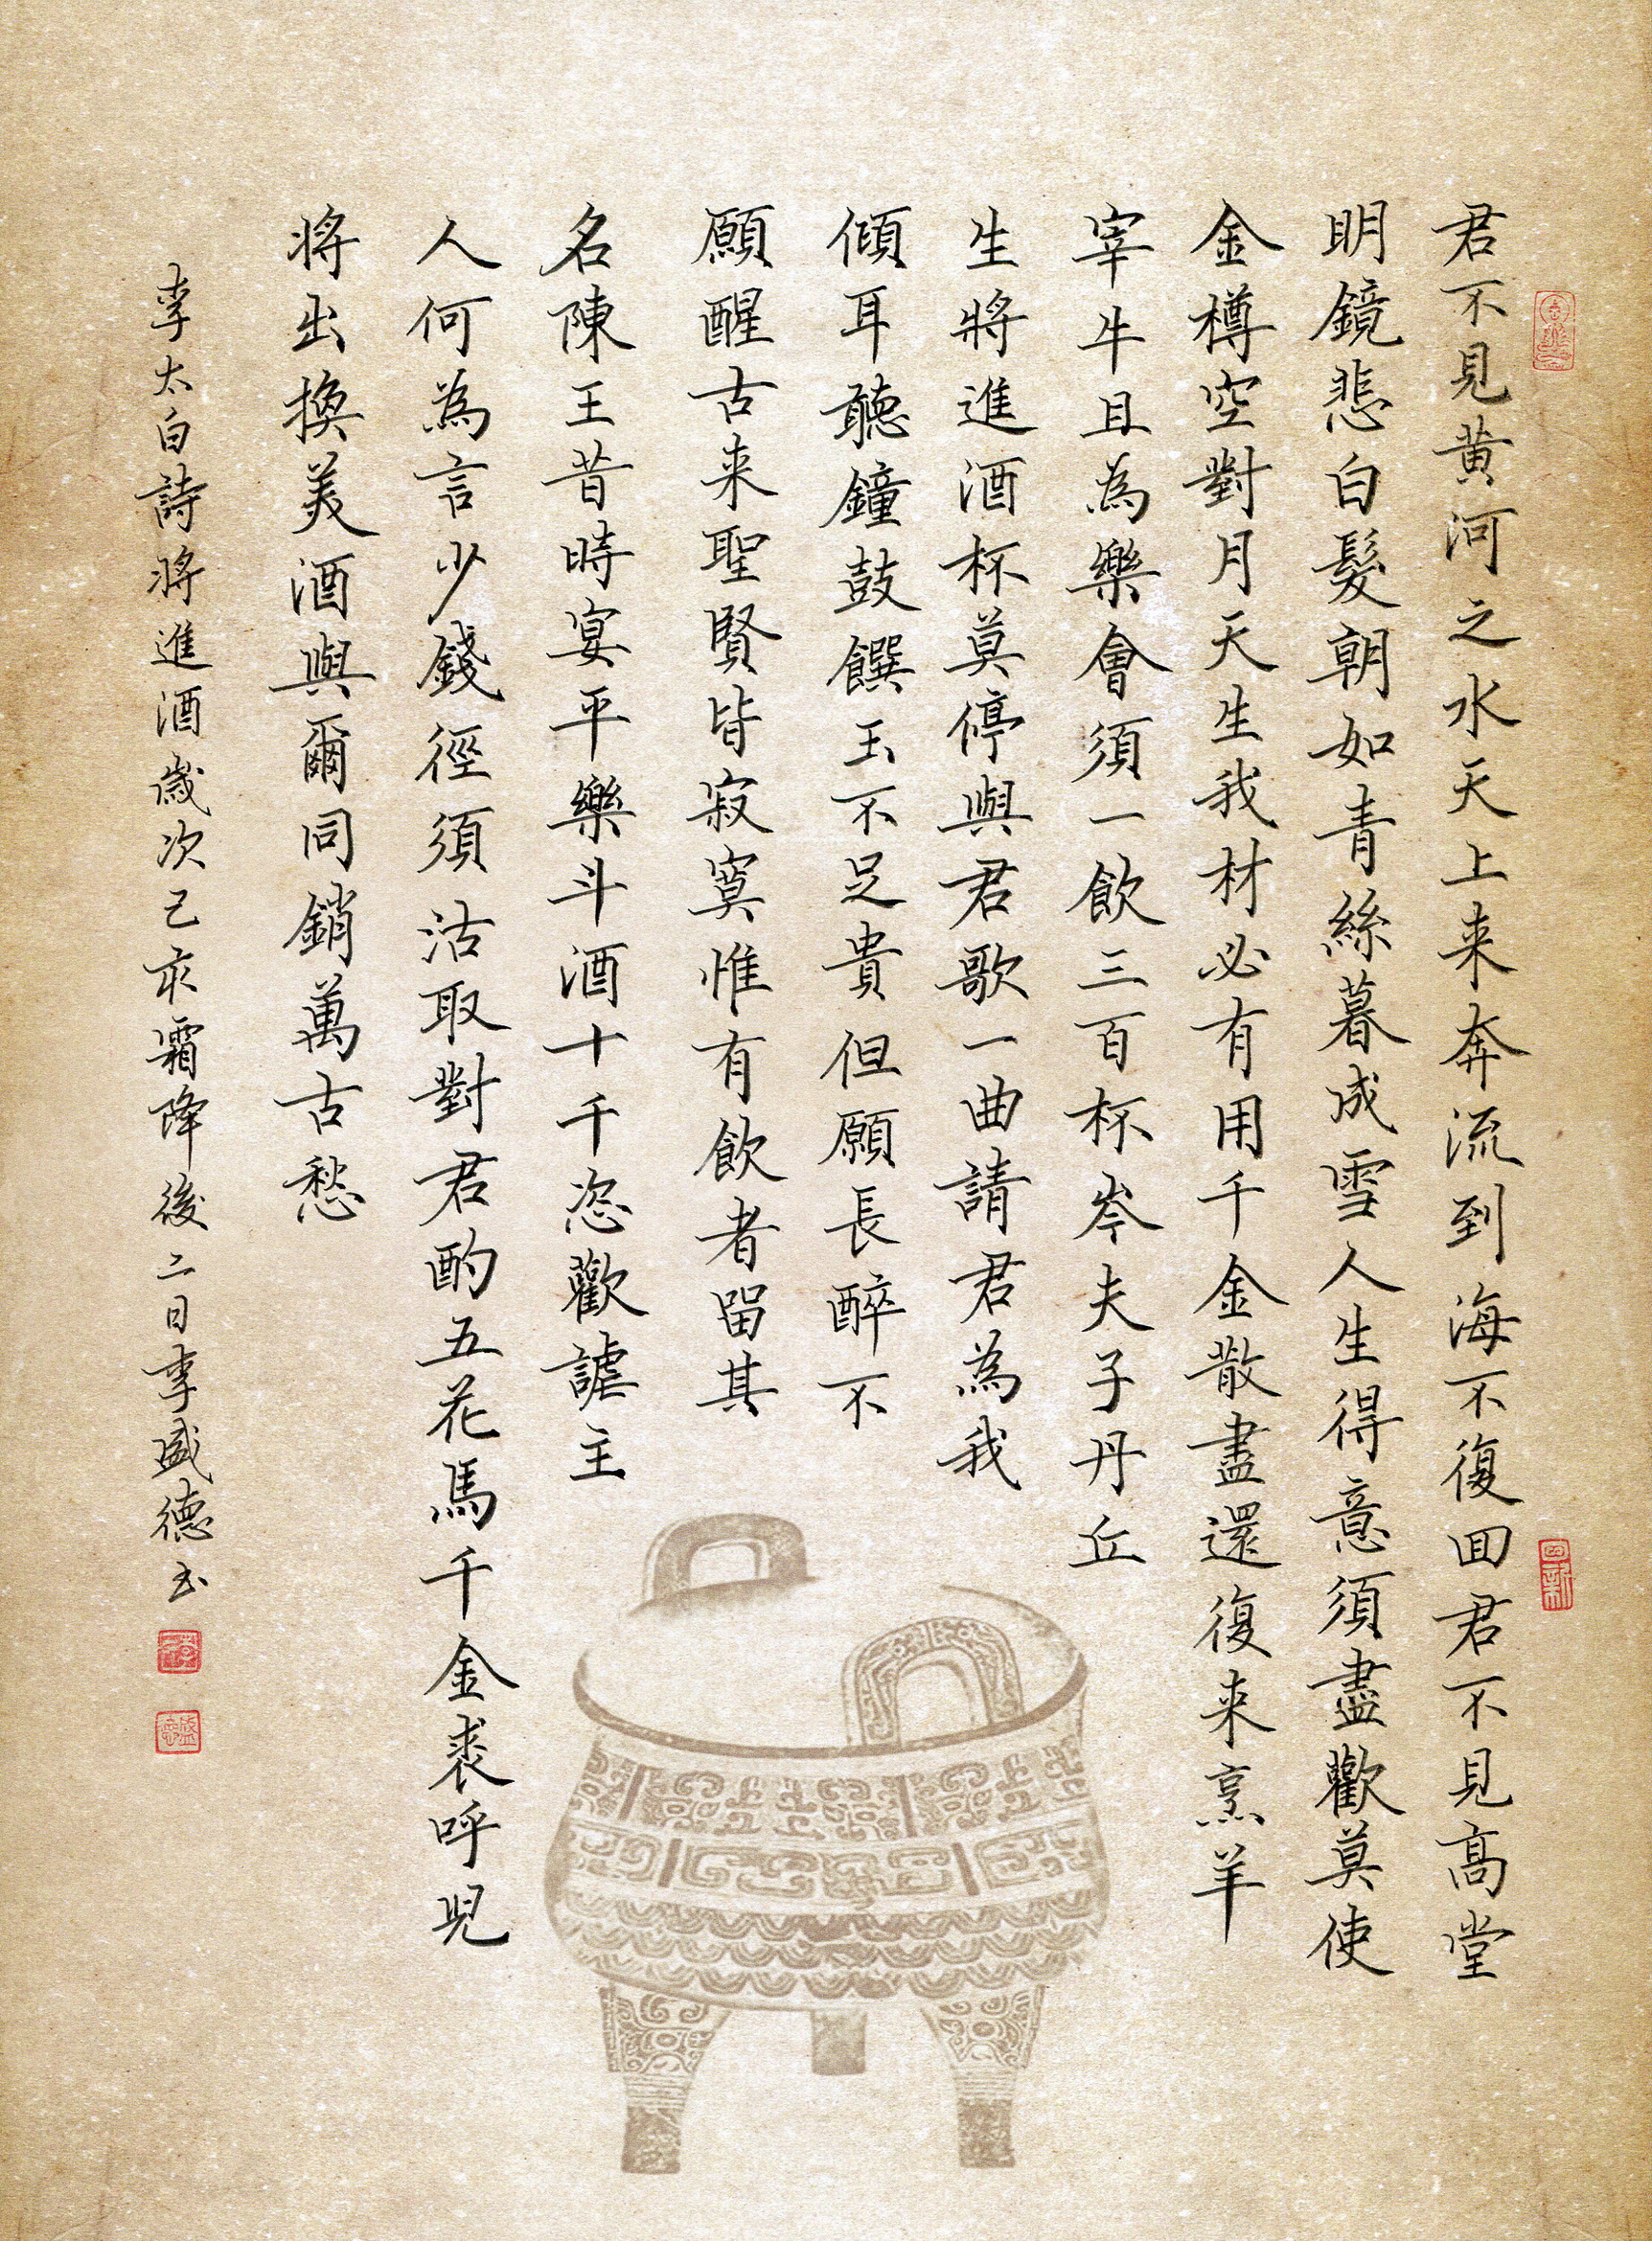 君不見黄河之水天上来奔流到海不復回君不見高堂
明鏡悲白髮朝如青絲暮成雪人生得意須盡歡莫使
金樽空對月天生我材必有用千金散盡還復来烹羊
宰牛且為樂會須一飲三百杯岑夫子丹丘
生將進酒杯莫停與君歌一曲請君為我
傾耳聽鐘鼓饌玉不足貴但願長醉不
願醒古来聖賢皆寂寞惟有飲者留其
名陳王昔時宴平樂斗酒十千恣歡謔主
人何為言少錢徑須沽取對君酌五花馬千金裘呼兒
將出換美酒與爾同銷萬古愁
李太白詩將進酒歲次己亥霜降後二日李盛德書